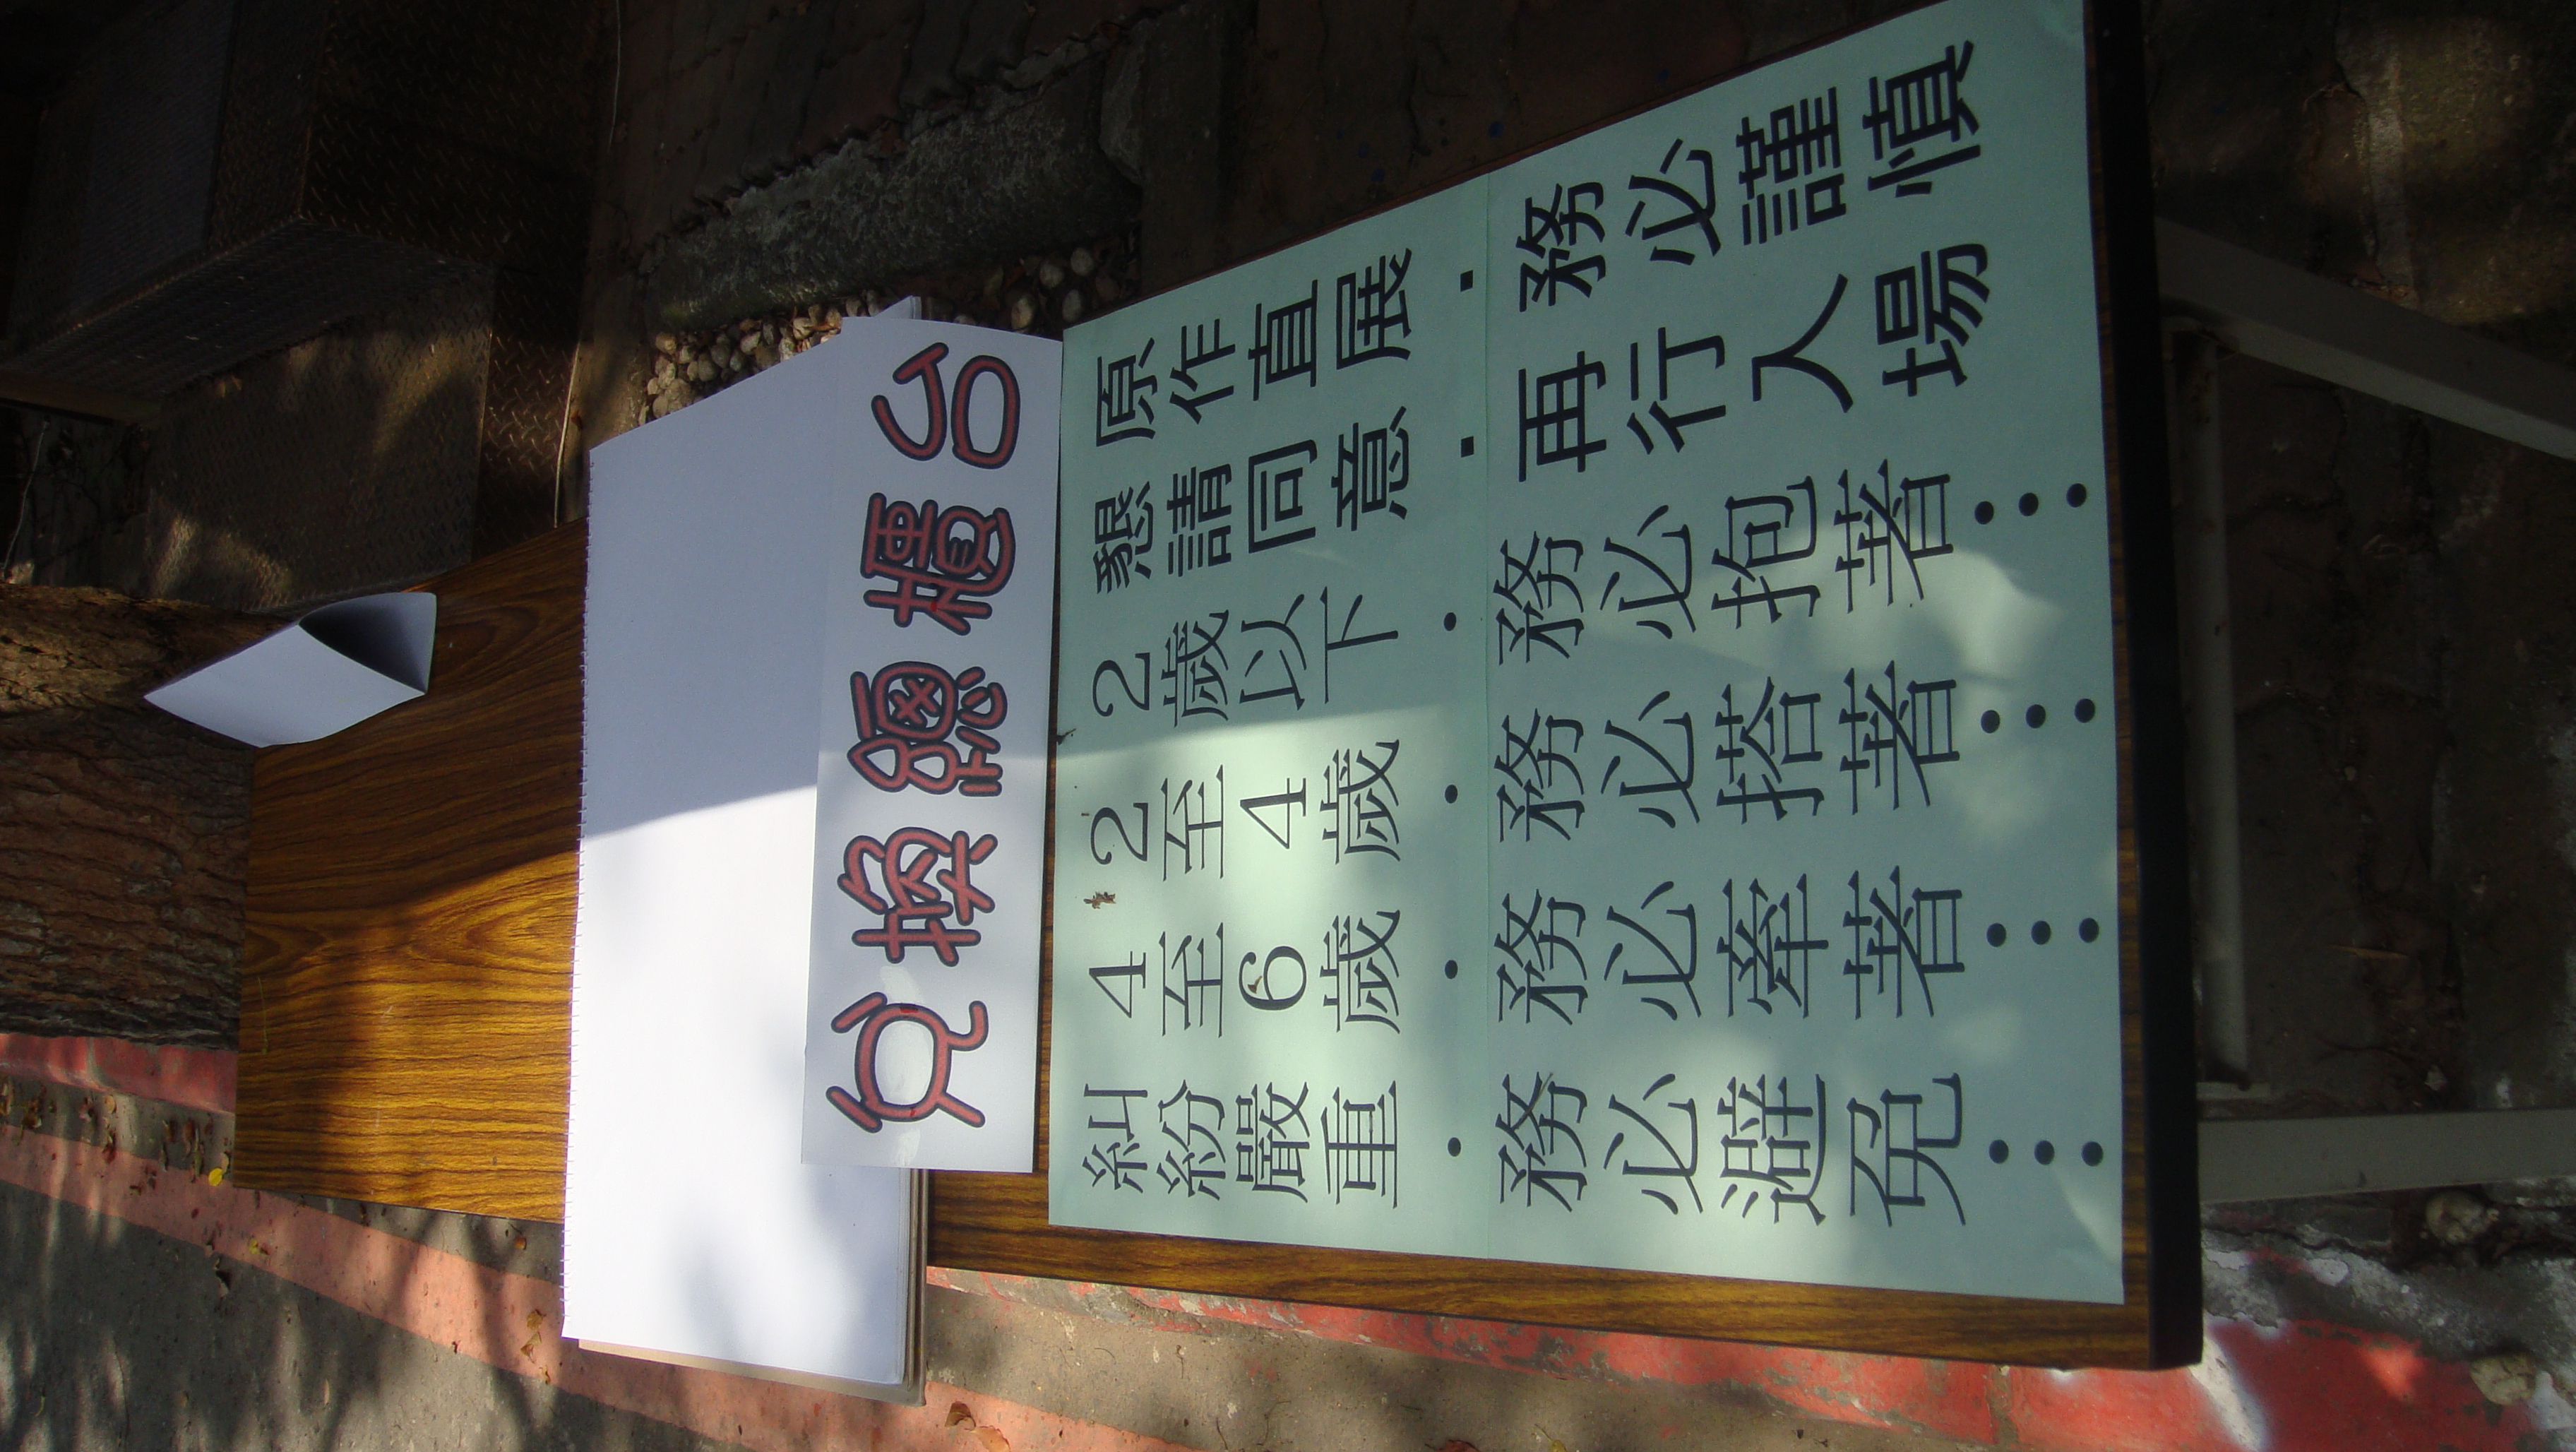 兌換櫃台
原作直展．務必謹慎
懇請同意．再行入場
2歲以下．務必抱著…
2至4歲．務必搭著…
4至6歲．務必牽著…
糾紛嚴重．務必避免…